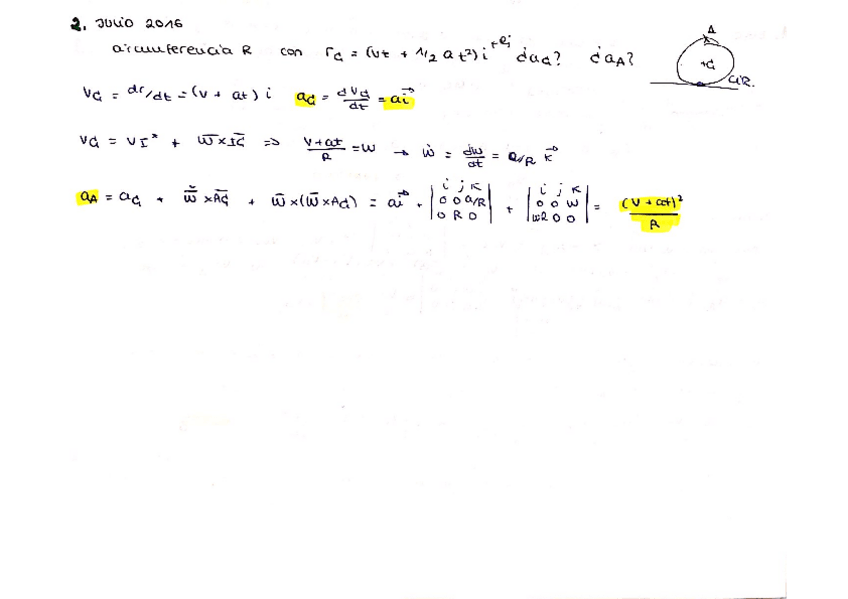 2. JULIO 2016
circunferencia R con r_G = (vt + 1/2 a t²) i + Rj ¿a_G? ¿a_A?
A
+G
CIR.
v_G = dr/dt = (v + at) i a_G = dv_G/dt = a i⃗
v_G = v_I* + ω̄ × IG ⇒ (v+at)/R = ω → ω̇ = dω/dt = a/R k⃗
a_A = a_G + ω̇ × AG + ω̄ × (ω̄ × AG) = a i⃗ + | i j k ; 0 0 a/R ; 0 R 0 | + | i j k ; 0 0 ω ; ωR 0 0 | = (v + at)² / R